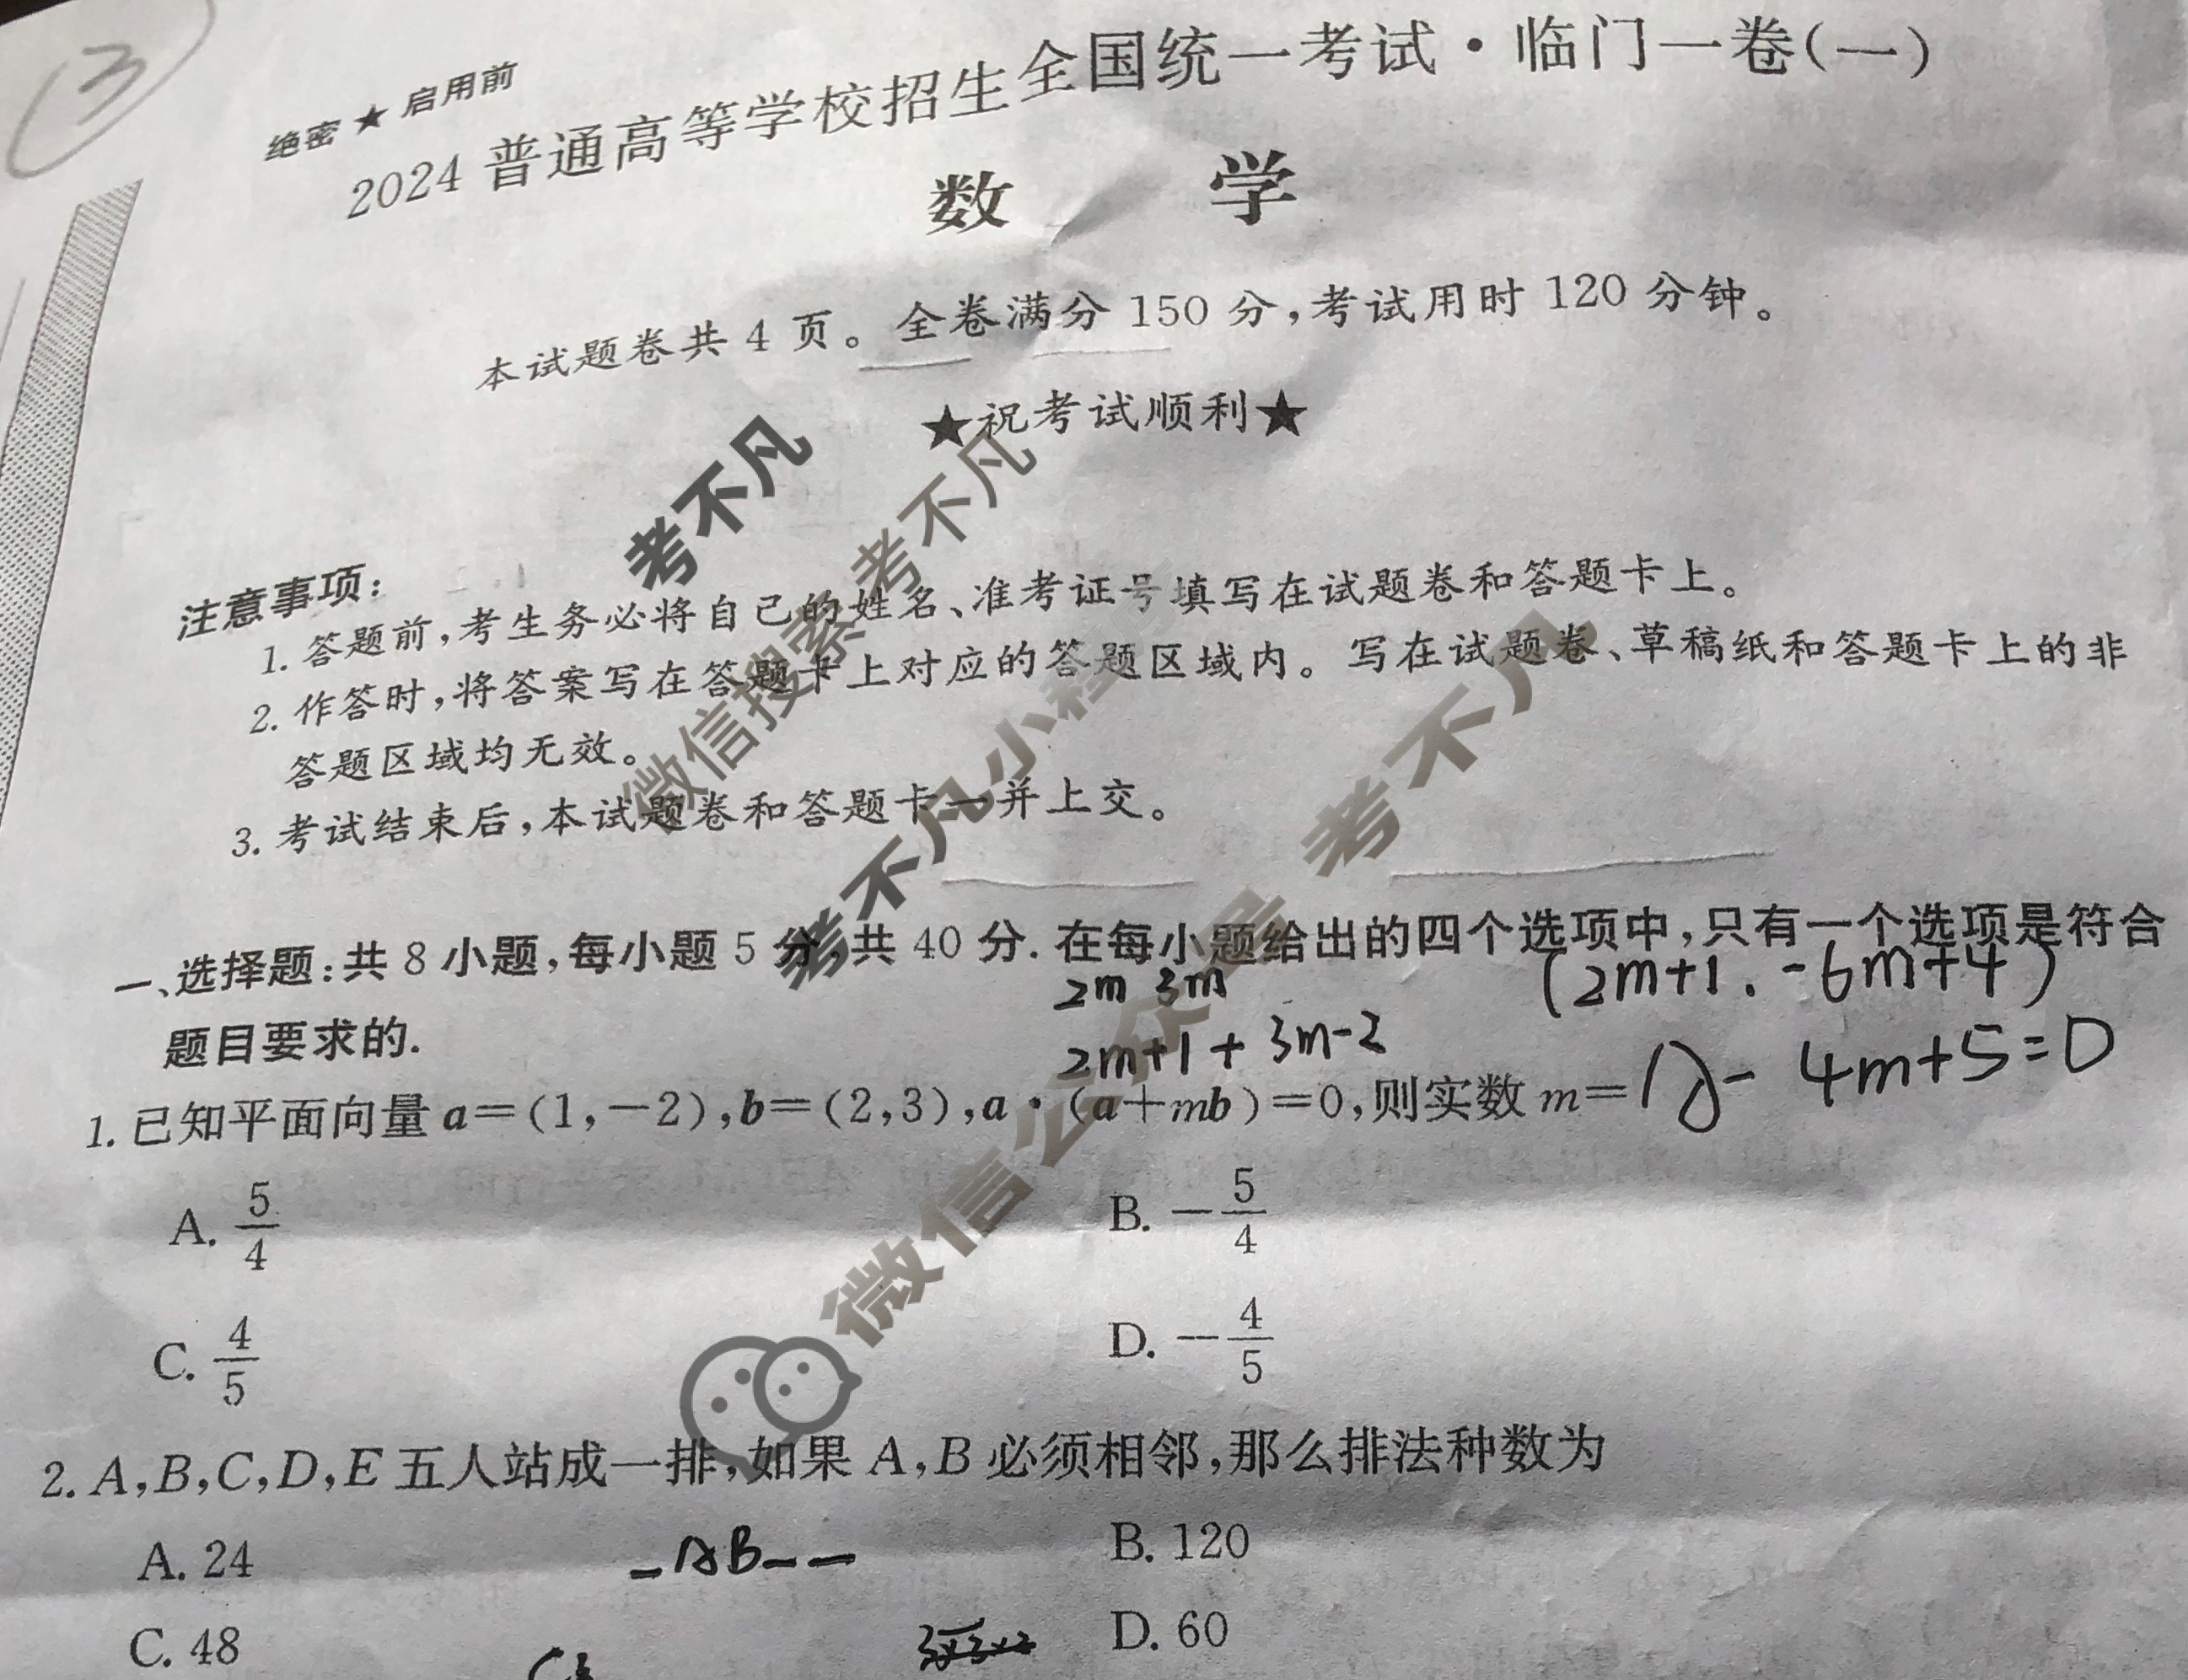 ③
绝密★启用前
2024普通高等学校招生全国统一考试·临门一卷(一)
数 学
本试题卷共4页。全卷满分150分,考试用时120分钟。
★祝考试顺利★
考不凡
微信搜索 考不凡
考不凡小程序
微信公众号 考不凡
注意事项:
1. 答题前,考生务必将自己的姓名、准考证号填写在试题卷和答题卡上。
2. 作答时,将答案写在答题卡上对应的答题区域内。写在试题卷、草稿纸和答题卡上的非
答题区域均无效。
3. 考试结束后,本试题卷和答题卡一并上交。
一、选择题:共8小题,每小题5分,共40分. 在每小题给出的四个选项中,只有一个选项是符合
题目要求的.
2m 3m
(2m+1. -6m+4)
2m+1+3m-2
- 4m+5=0
1. 已知平面向量a=(1,-2),b=(2,3),a·(a+mb)=0,则实数m=
A. 5/4
B. -5/4
C. 4/5
D. -4/5
2. A,B,C,D,E五人站成一排,如果A,B必须相邻,那么排法种数为
A. 24
_AB__
B. 120
C. 48
D. 60